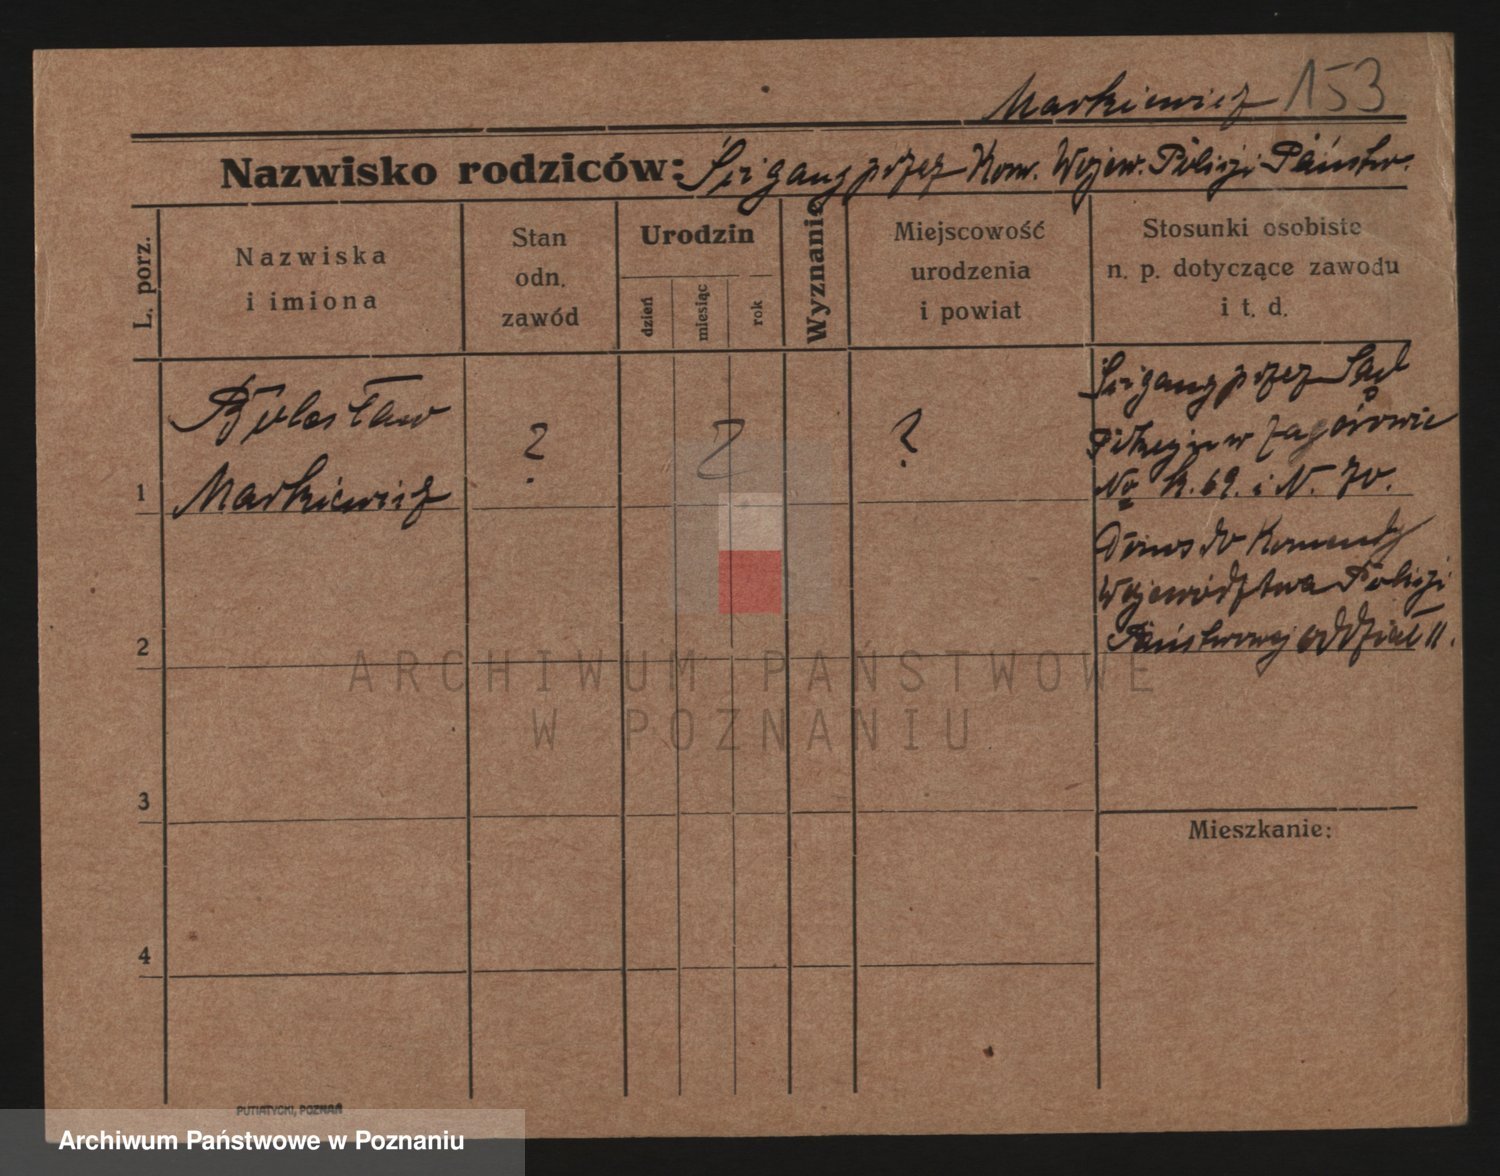 Markiewicz 153
Nazwisko rodziców: Ścigany przez Kom. Wojew. Policji Państw.
L. porz.
Nazwiska
i imiona
Stan
odn.
zawód
Urodzin
dzień
miesiąc
rok
Wyznanie
Miejscowość
urodzenia
i powiat
Stosunki osobiste
n. p. dotyczące zawodu
i t. d.
1
Bolesław
Markiewicz
?
?
?
Ścigany przez Sąd
Pokoju w Zagórowie
No K. 69. i N. 70.
Donos do Komendy
Województwa Policji
Państwowej oddział II.
2
3
4
Mieszkanie:
ARCHIWUM PAŃSTWOWE
W POZNANIU
PUTIATYCKI, POZNAŃ
Archiwum Państwowe w Poznaniu